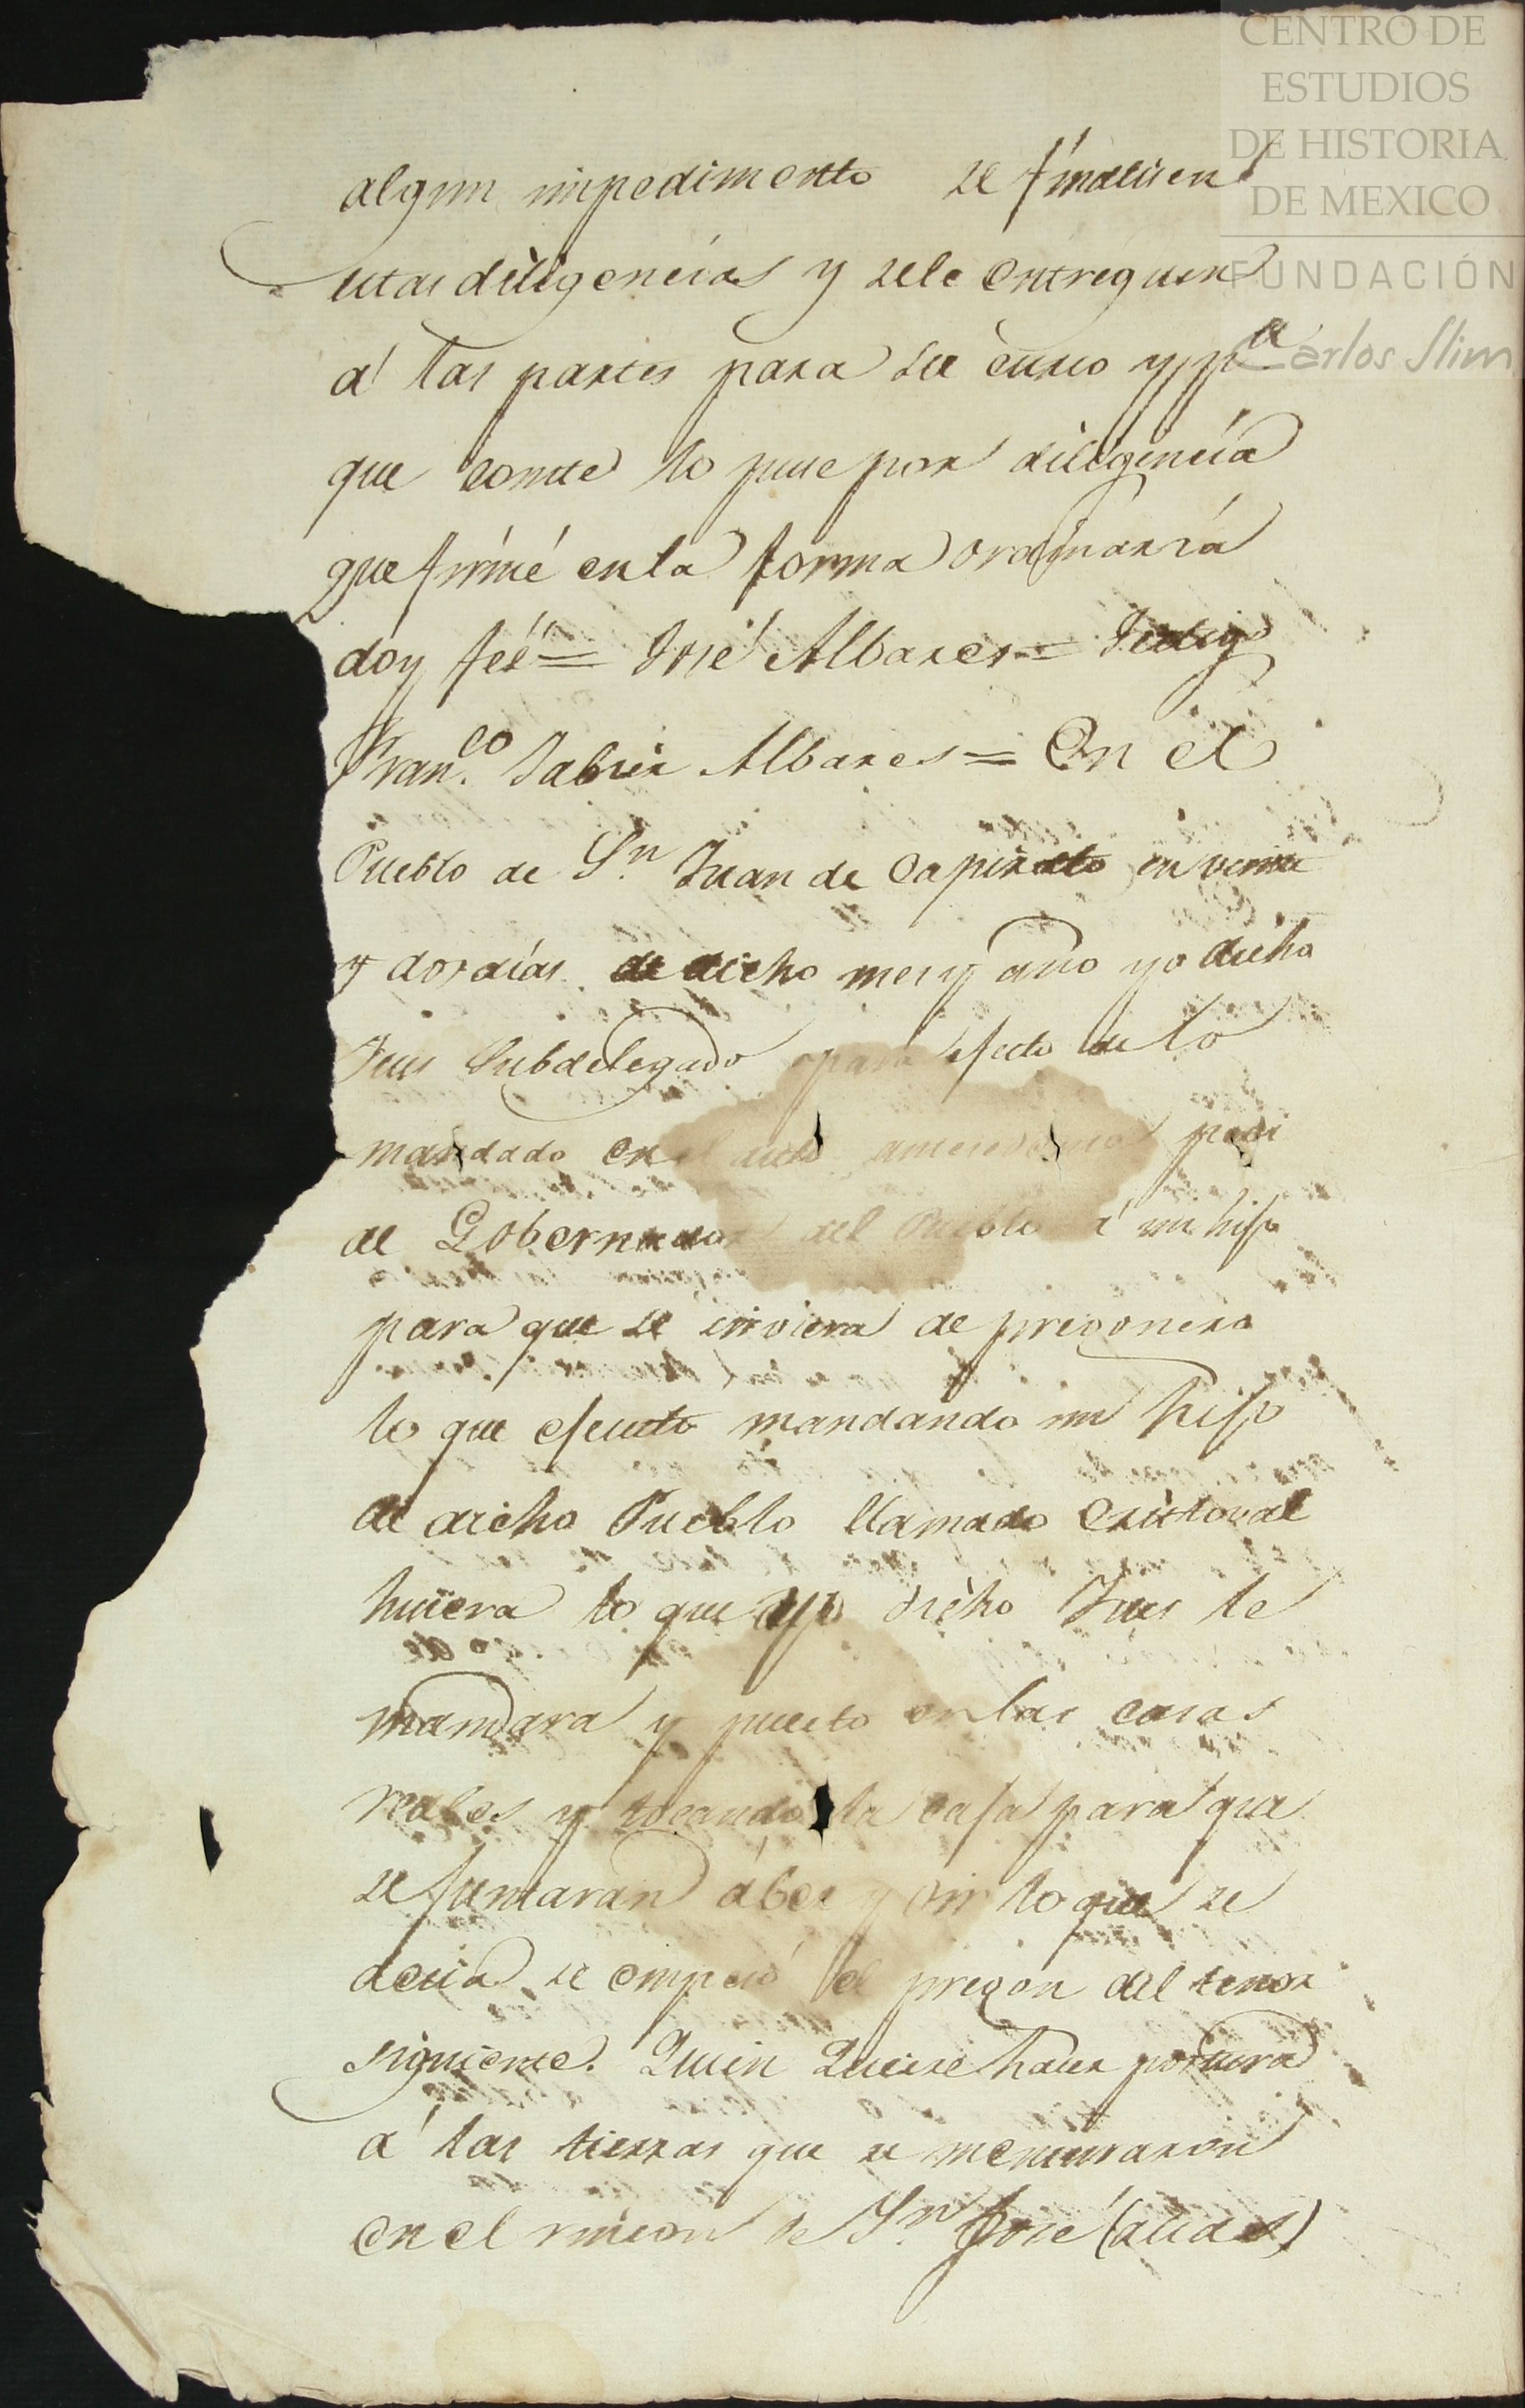 CENTRO DE
ESTUDIOS
DE HISTORIA
DE MEXICO
FUNDACIÓN
Carlos Slim
algun impedimento se finalisen
estas diligencias y sele entreguen
á las partes para su curso y p.a
que conste lo puse por diligencia
que firmé en la forma ordinaria
doy feé = José Albares = Testigo
Fran.co Jabier Albares = En el
Pueblo de S.n Juan de Capirato en veinte
y dos dias de dicho mes y año yo dicho
Jues Subdelegado para efecto de lo
mandado en el auto antecedente pedi
al Gobernador del Pueblo á un hijo
para que se sirviera de pregonero
lo que ejecuto mandando un hijo
de dicho Pueblo llamado Cristoval
hisiera lo que yo dicho Jues le
mandara y puesto en las casas
reales y tocando la caja para que
se juntaran á ber y oir lo que se
decia se empesó el pregon del tenor
siguiente. Quien Quisiere haser postura
á las tierras que se mensuraron
en el rincon de S.n José (alias)